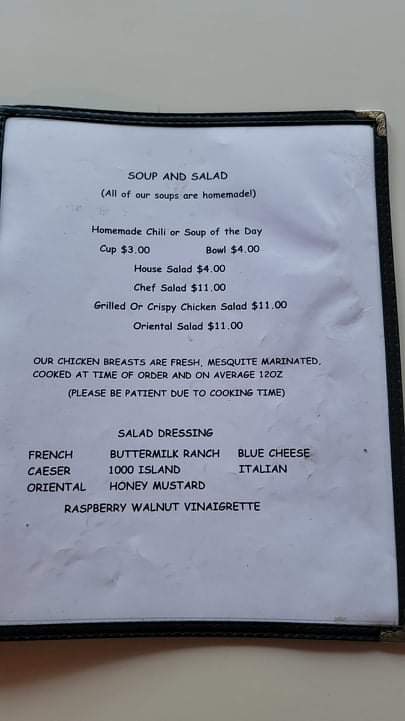 SOUP AND SALAD
(All of our soups are homemade!)
Homemade Chili or Soup of the Day
Cup $3.00 Bowl $4.00
House Salad $4.00
Chef Salad $11.00
Grilled Or Crispy Chicken Salad $11.00
Oriental Salad $11.00
OUR CHICKEN BREASTS ARE FRESH, MESQUITE MARINATED,
COOKED AT TIME OF ORDER AND ON AVERAGE 12OZ
(PLEASE BE PATIENT DUE TO COOKING TIME)
SALAD DRESSING
FRENCH BUTTERMILK RANCH BLUE CHEESE
CAESER 1000 ISLAND ITALIAN
ORIENTAL HONEY MUSTARD
RASPBERRY WALNUT VINAIGRETTE